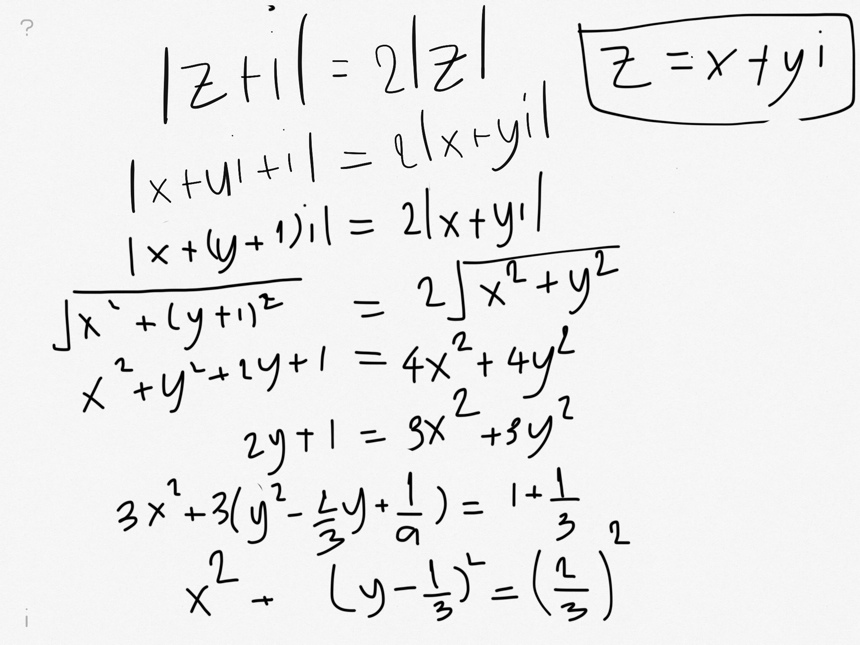 ?
|z+i| = 2|z|
z = x + yi
|x+yi+i| = 2|x+yi|
|x+(y+1)i| = 2|x+yi|
√(x²+(y+1)²) = 2√(x²+y²)
x²+y²+2y+1 = 4x²+4y²
2y+1 = 3x²+3y²
3x²+3(y²-2/3y+1/9) = 1+1/3
x² + (y-1/3)² = (2/3)²
i